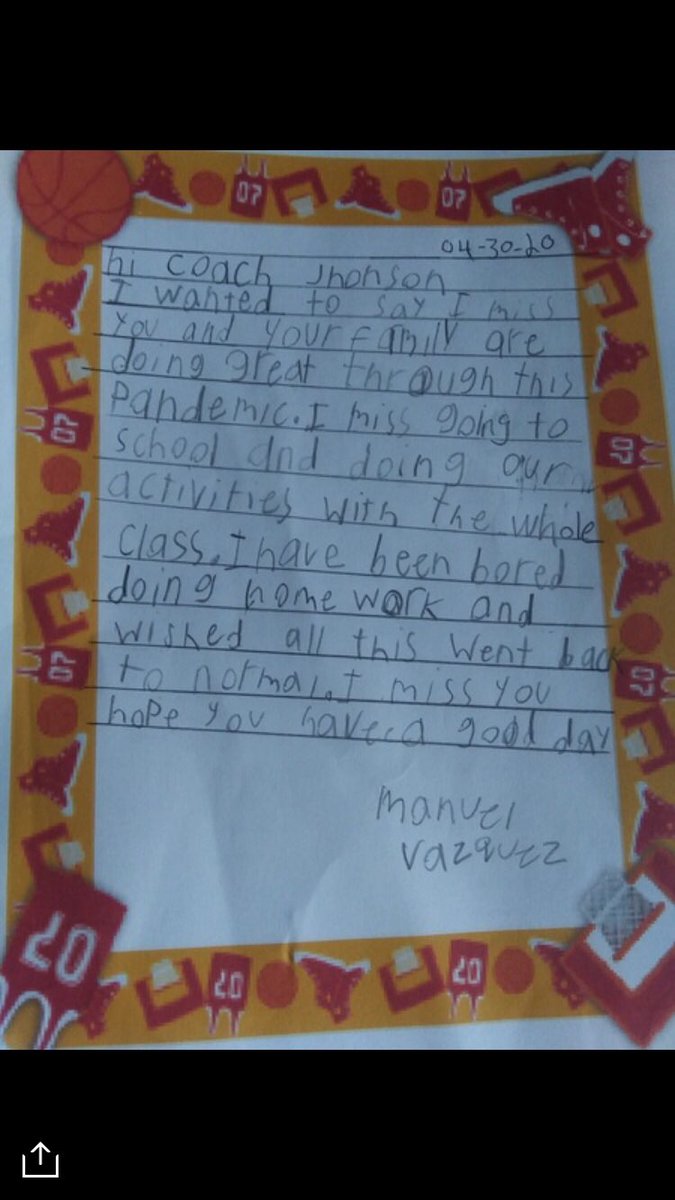 04-30-20
hi coach Jhonson
I wanted to say I miss
you and your family are
doing great through this
Pandemic. I miss going to
school and doing our
activities with the whole
class. I have been bored
doing home work and
wished all this went back
to normal. I miss you
hope you have a good day
Manuel
Vazquez
07
07
07
07
07
07
07
07
07
07